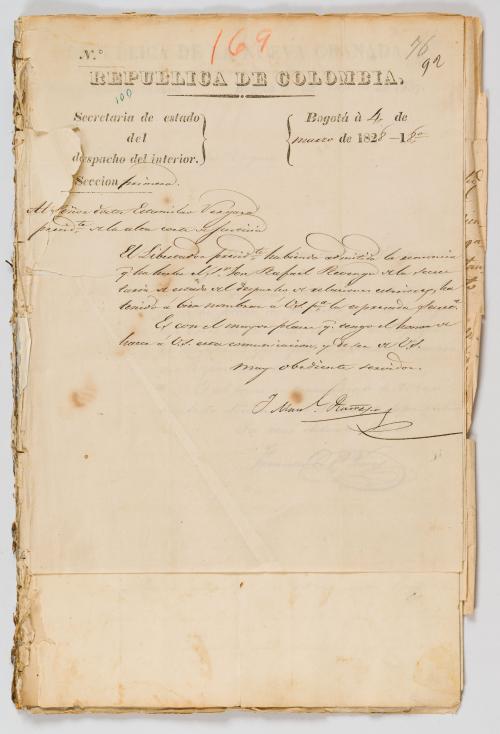 169
76
92
N.º
REPUBLICA DE COLOMBIA.
100
Secretaria de estado
del
despacho del interior.
Seccion primera.
Bogotá à 4 de
marzo de 1828–18º
Al Señor doctor Estanislao Vergara
presid.te de la alta corte de justicia
El Libertador presid.te habiendo admitido la renuncia
q. ha hecho el S.r Jose Rafael Revenga de la secre
taria de estado del despacho de relaciones esteriores, ha
tenido à bien nombrar à US. p.a la espresada secret.a
Es con el mayor placer q. tengo el honor de
hacer à U.S. esta comunicacion, y de ser de U.S.
muy obediente servidor.
J. Man.l Restrepo